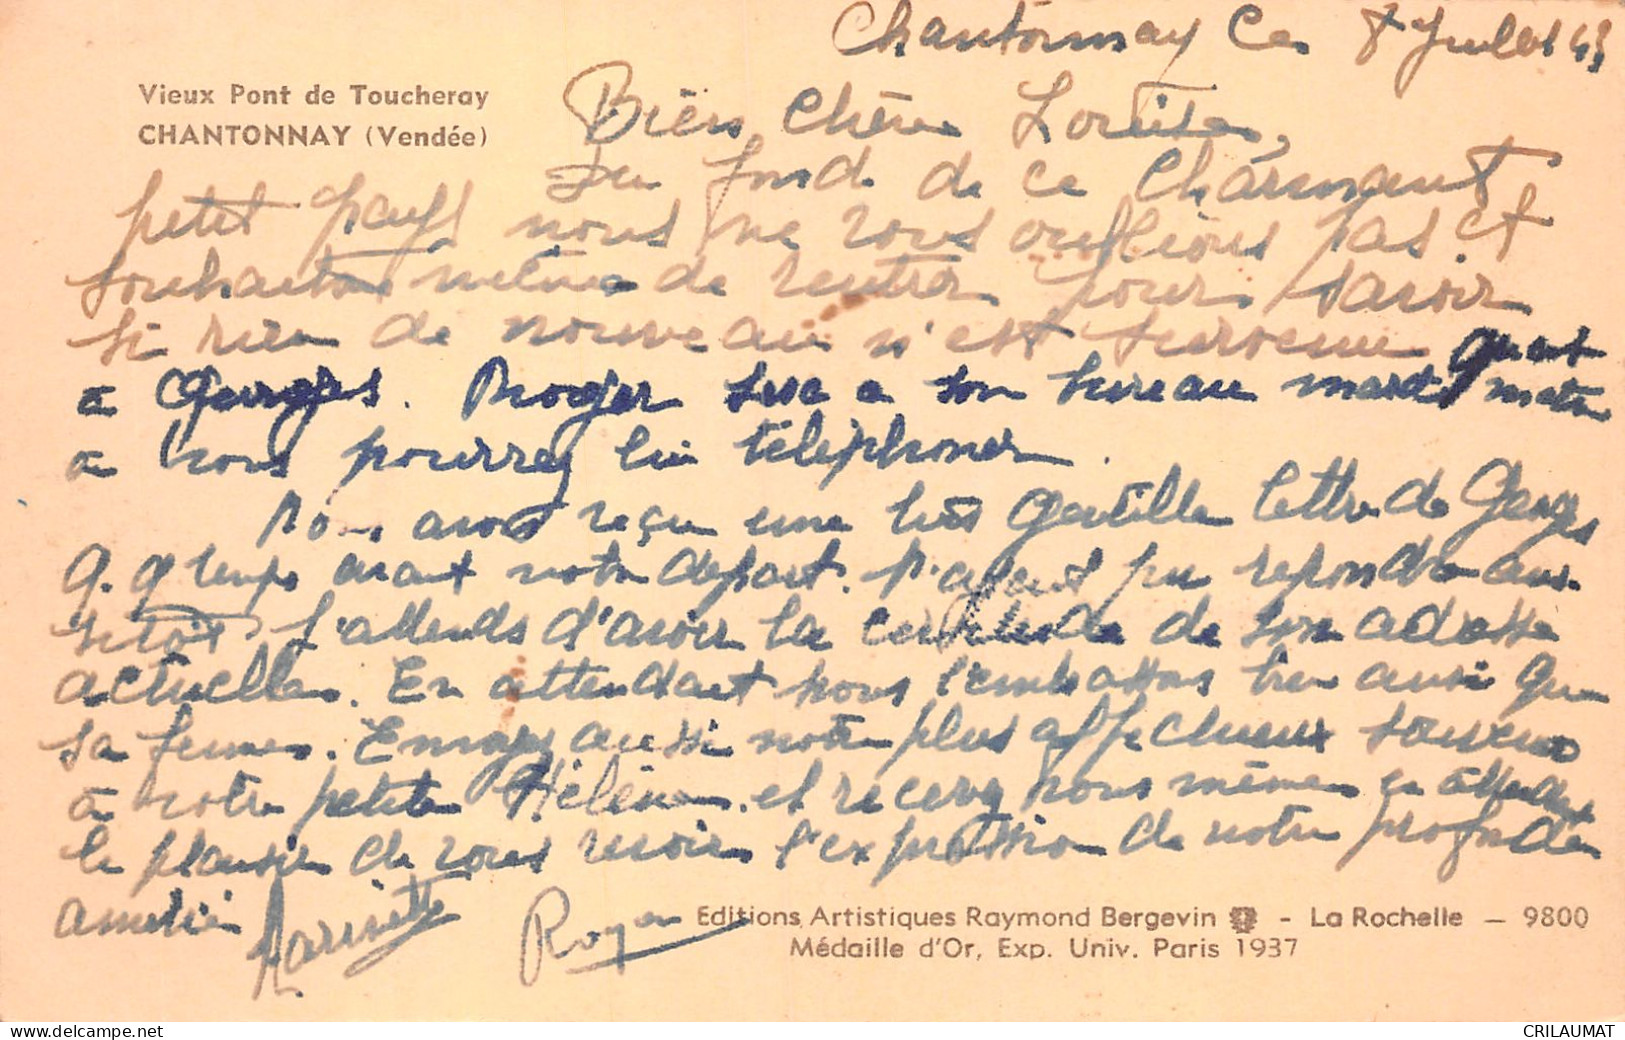 Chantonnay Ce 8 Juillet 43
Vieux Pont de Toucheray
CHANTONNAY (Vendée)
Bien Chère
Du fond de ce Charmant
petit pays nous ne vous oublions pas et
souhaitons même de rentrer pour savoir
si rien de nouveau n'est survenu quant
à Georges. Roger sera a son bureau mardi matin
a vous pourrez lui téléphoner.
Nous avons reçu une très gentille lettre de Georges
q. q temps avant notre départ. N'ayant pu répondre aus-
sitôt j'attends d'avoir la certitude de son adresse
actuelle. En attendant nous l'embrassons bien ainsi que
sa femme. Envoyez aussi notre plus affectueux souvenir
à votre petite Hélène et recevez vous même en attendant
le plaisir de vous revoir l'expression de notre profonde
amitié
Roger
Editions Artistiques Raymond Bergevin - La Rochelle — 9800
Médaille d'Or, Exp. Univ. Paris 1937
CRILAUMAT
www.delcampe.net